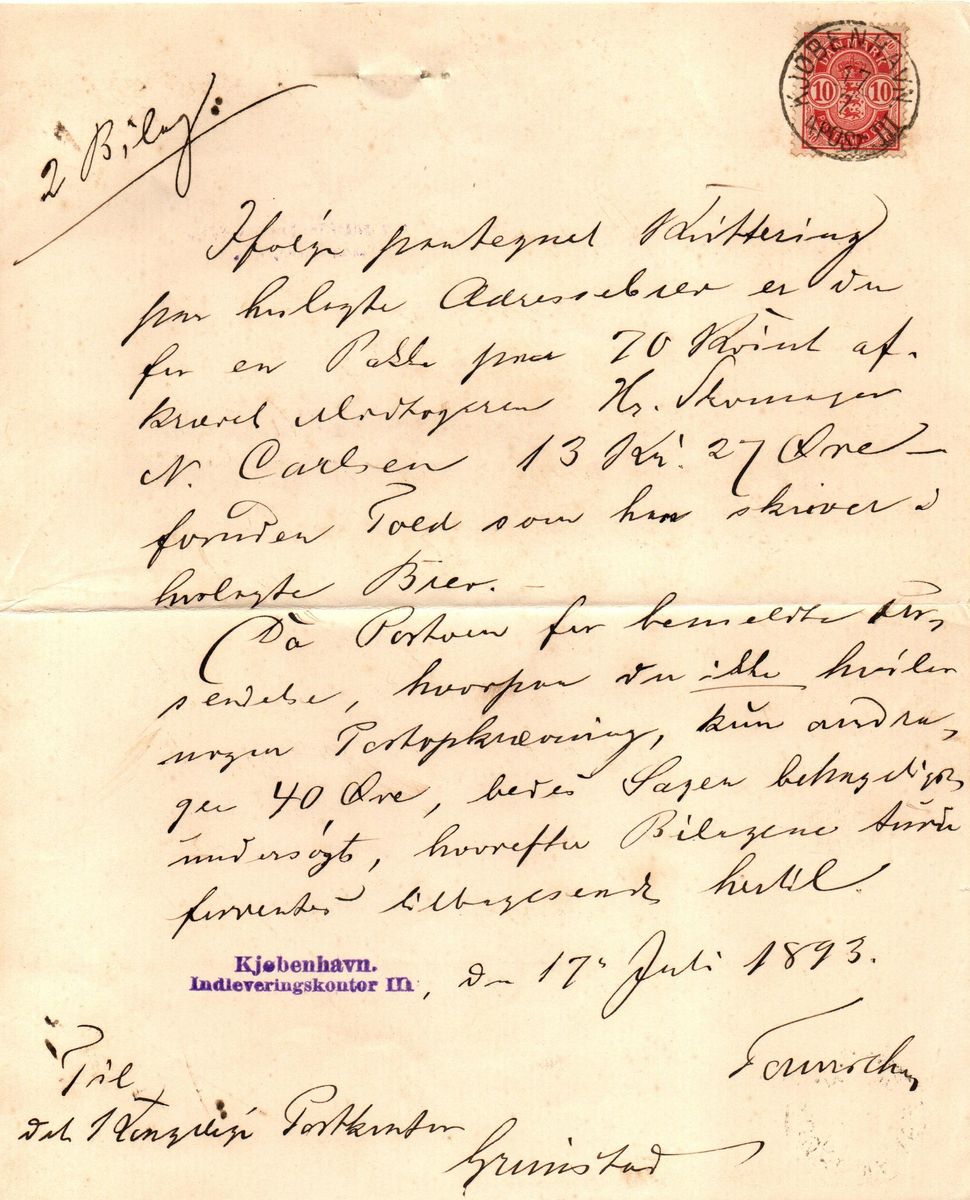 2 Bilag:
KJØBENHAVN
17
7
DANMARK
10 10
Ifølge paategnet Kvittering
paa hoslagte Adressebrev er der
for en Pakke paa 70 Kvint af-
krævet Modtageren Hr. Skomager
N. Carlsen 13 Kr. 27 Øre –
foruden Told som han skriver i
hoslagte Brev. –
Da Portoen for bemeldte For-
sendelse, hvorpaa der ikke hviler
nogen Postopkrævning, kun andra-
ger 40 Øre, bedes Sagen behageligst
undersøgt, hvorefter Bilagene turde
forventes tilbagesendt hertil.
Kjøbenhavn.
Indleveringskontor III, d. 17' Juli 1893.
Til
det Kongelige Postkontor
Grimstad